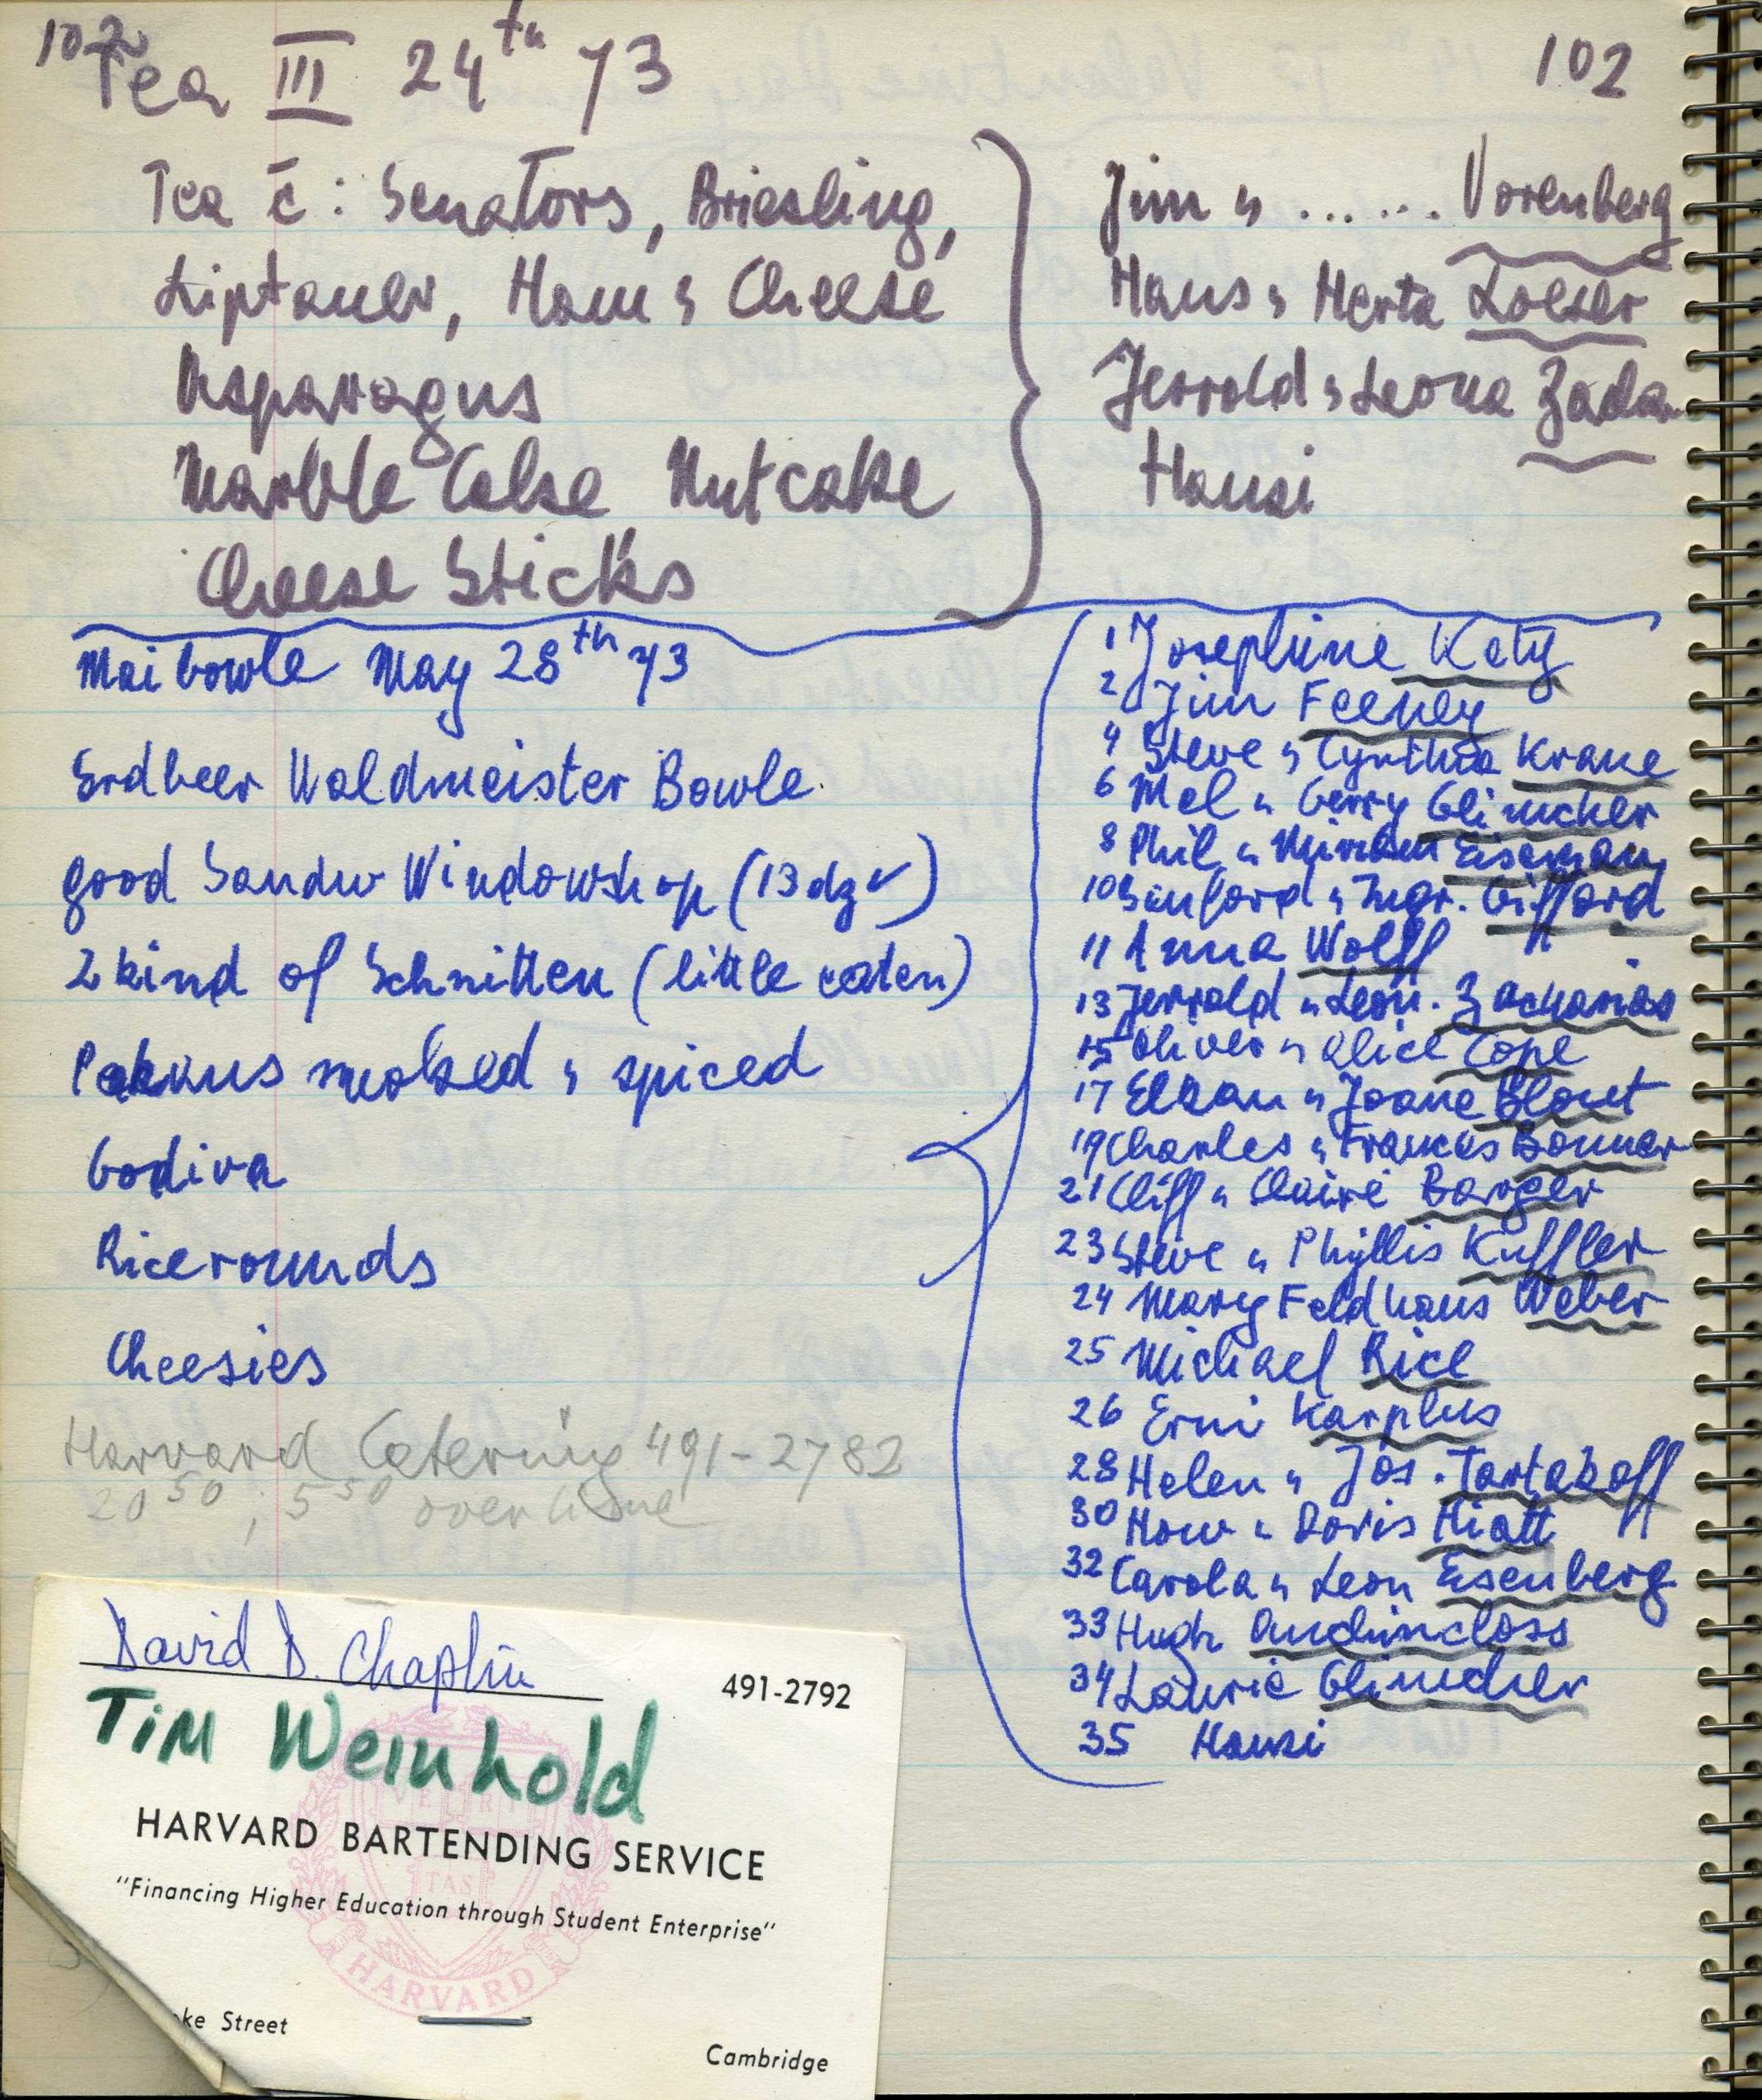 102
Tea III 24th 73
102
Tea c̄ : Senators, Briesling,
Liptauer, Ham & Cheese
Asparagus
Marble Cake Nutcake
Cheese Sticks
Jim & ...... Vorenberg
Hans & Herta Loeser
Jerrold & Leona Zada
Hansi
Maibowle May 28th 73
Erdbeer Waldmeister Bowle
good Sandw Windowshop (13 dz ✓)
2 kind of Schnitten (little eaten)
smoked & spiced
Godiva
Rice rounds
Cheesies
Harvard Catering 491-2782
20 50 ; 5 50 overtime
1 Josephine Kety
2 Jim Feeney
4 Steve & Cynthia Krane
6 Mel & Gerry Glimcher
8 Phil & Miriam Eiseman
10 Sanford & Ingr. Gifford
11 Anna Wolff
13 Jerrold & Leon. Zacharias
15 Oliver & Alice Cope
17 Elkan & Joane Blout
19 Charles & Frances Bonner
21 Cliff & Claire Barger
23 Steve & Phyllis Kuffler
24 Mary Feldhaus Weber
25 Michael Rice
26 Erni Karplus
28 Helen & Jos. Tartakoff
30 How & Doris Hiatt
32 Carola & Leon Eisenberg
33 Hugh Auchincloss
34 Laurie Glimcher
35 Hansi
David D. Chaplin
491-2792
TiM Weinhold
HARVARD BARTENDING SERVICE
"Financing Higher Education through Student Enterprise"
VE RI
TAS
HARVARD
ke Street
Cambridge